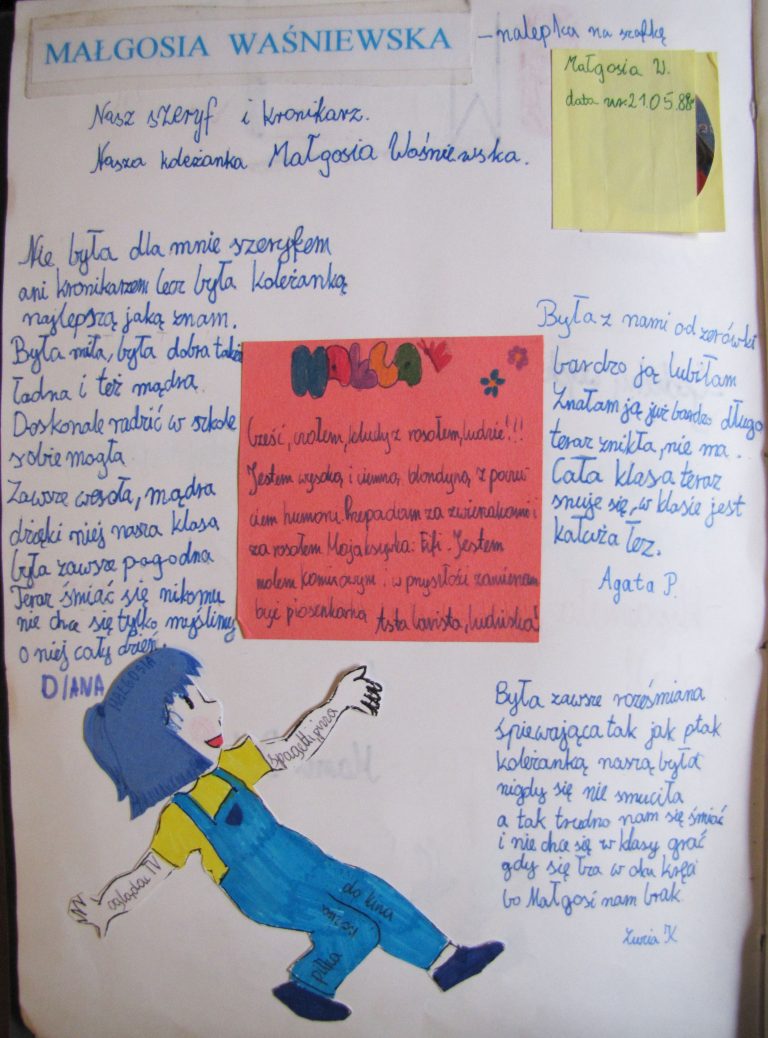 MAŁGOSIA WAŚNIEWSKA
– nalepka na szafkę
Małgosia W.
data ur. 21.05.88
Nasz szeryf i kronikarz.
Nasza koleżanka Małgosia Waśniewska.
Nie była dla mnie szeryfem
ani kronikarzem lecz była koleżanką
najlepszą jaką znam.
Była miła, była dobra także
ładna i też mądra
Doskonale radzić w szkole
sobie mogła
Zawsze wesoła, mądra
dzięki niej nasza klasa
była zawsze pogodna
Teraz śmiać się nikomu
nie chce się tylko myślimy
o niej cały dzień.
DIANA
MAŁGA
Cześć, czołem, kluchy z rosołem, ludzie!!!
Jestem wysoką i ciemną blondyną z poczu-
ciem humoru. Przepadam za zwierzakami i
za rosołem. Moja ksywka: Fifi. Jestem
molem komixowym. w przyszłości zamierzam
być piosenkarką Asta lavista, ludziska!
Była z nami od zerówki
bardzo ją lubiłam
Znałam ją już bardzo długo
teraz znikła, nie ma.
Cała klasa teraz
snuje się, w klasie jest
kałuża łez.
Agata P.
Była zawsze roześmiana
śpiewająca tak jak ptak
koleżanką naszą była
nigdy się nie smuciła
a tak trudno nam się śmiać
i nie chce się w klasy grać
gdy się łza w oku kręci
bo Małgosi nam brak.
Zuzia K
MAŁGOSIA
spagetti, pizza
oglądać TV
do kina
piłka